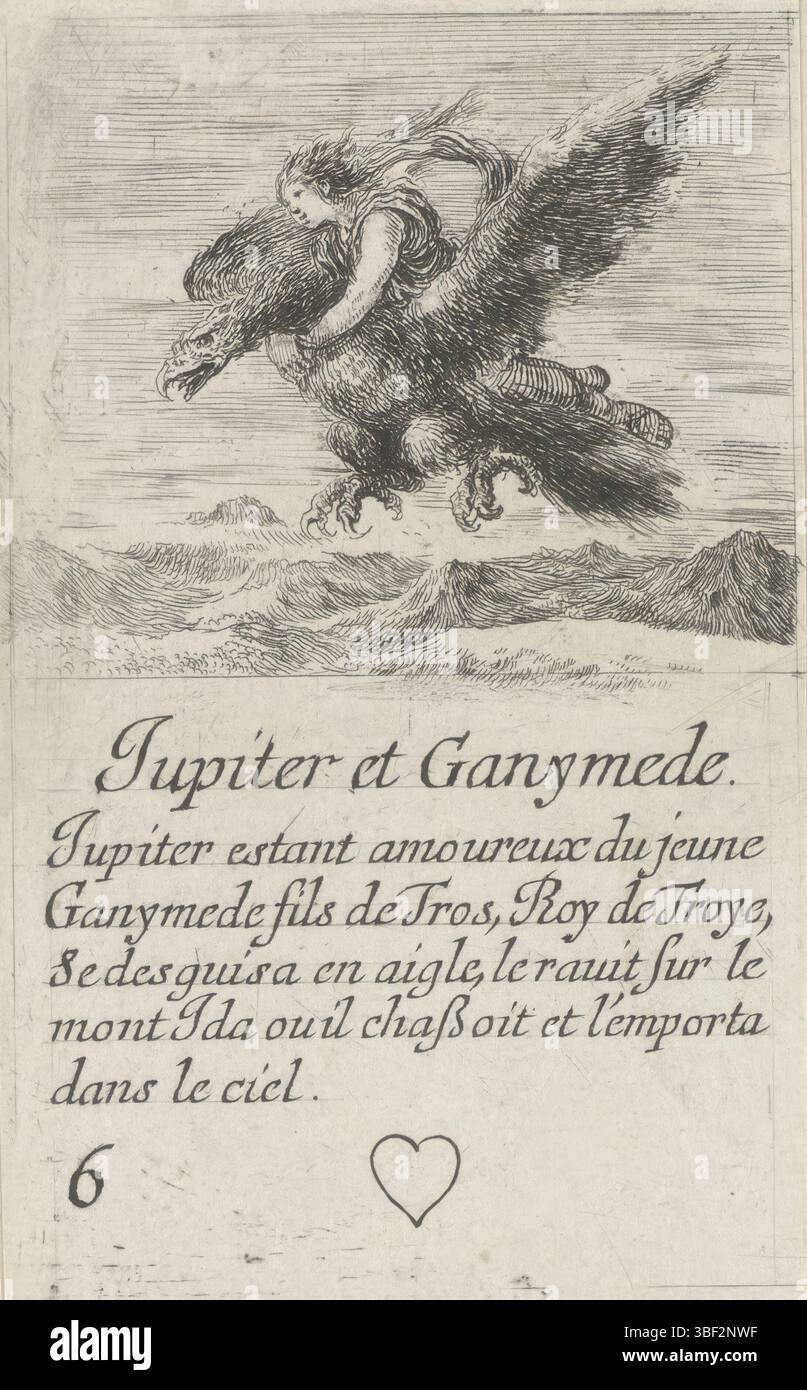 Iupiter et Ganymede.
Iupiter estant amoureux du jeune
Ganymede fils de Tros, Roy de Troye,
Se desguisa en aigle, le rauit ſur le
mont Ida ou il chaßoit et l'emporta
dans le ciel.
6
alamy
Image ID: 3BF2NWF
www.alamy.com